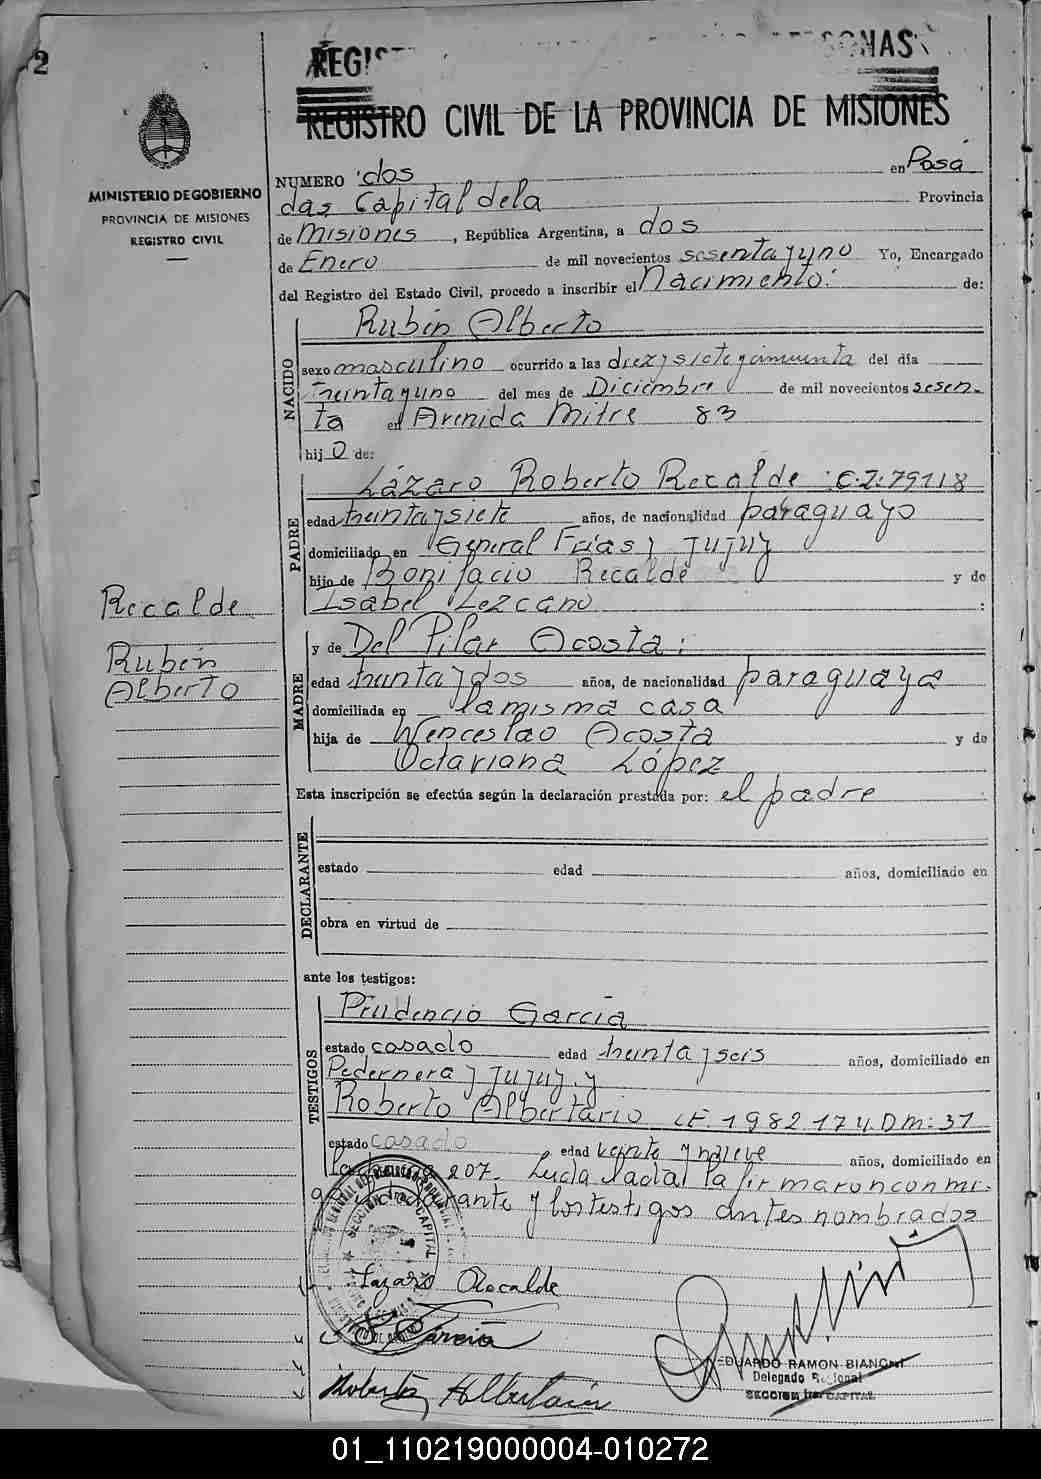 2
PERSONAS
REGISTRO CIVIL DE LA PROVINCIA DE MISIONES
MINISTERIO DE GOBIERNO
PROVINCIA DE MISIONES
REGISTRO CIVIL
NUMERO dos en Posa
das Capital dela Provincia
de Misiones, República Argentina, a dos
de Enero de mil novecientos sesenta y uno Yo, Encargado
del Registro del Estado Civil, procedo a inscribir el Nacimiento: de:
NACIDO
Rubén Alberto
sexo masculino ocurrido a las diez y siete y cincuenta del día
treinta y uno del mes de Diciembre de mil novecientos sesen-
ta en Avenida Mitre 83
hijo de:
PADRE
Lázaro Roberto Recalde : C.I. 79118
edad treinta y siete años, de nacionalidad paraguayo
domiciliado en General Frías y Jujuy
hijo de Bonifacio Recalde y de
Isabel Lezcano :
Recalde
Rubén
Alberto
MADRE
y de Del Pilar Acosta:
edad treinta y dos años, de nacionalidad paraguaya
domiciliada en la misma casa
hija de Wenceslao Acosta y de
Octaviana López
Esta inscripción se efectúa según la declaración prestada por: el padre
DECLARANTE
estado edad años, domiciliado en
obra en virtud de
ante los testigos:
TESTIGOS
Prudencio García
estado casado edad treinta y seis años, domiciliado en
Pedernera y Jujuy. y
Roberto Albertario LE. 1982174. DM: 31
estado casado edad veinte y nueve años, domiciliado en
207. Leida el acta la firmaron conmi-
y los testigos antes nombrados
SECCION 1ra. CAPITAL
Lazaro Recalde
García
Roberto Albertario
EDUARDO RAMON BIANCHI
Delegado Regional
SECCION 1ra. CAPITAL
01_110219000004-010272